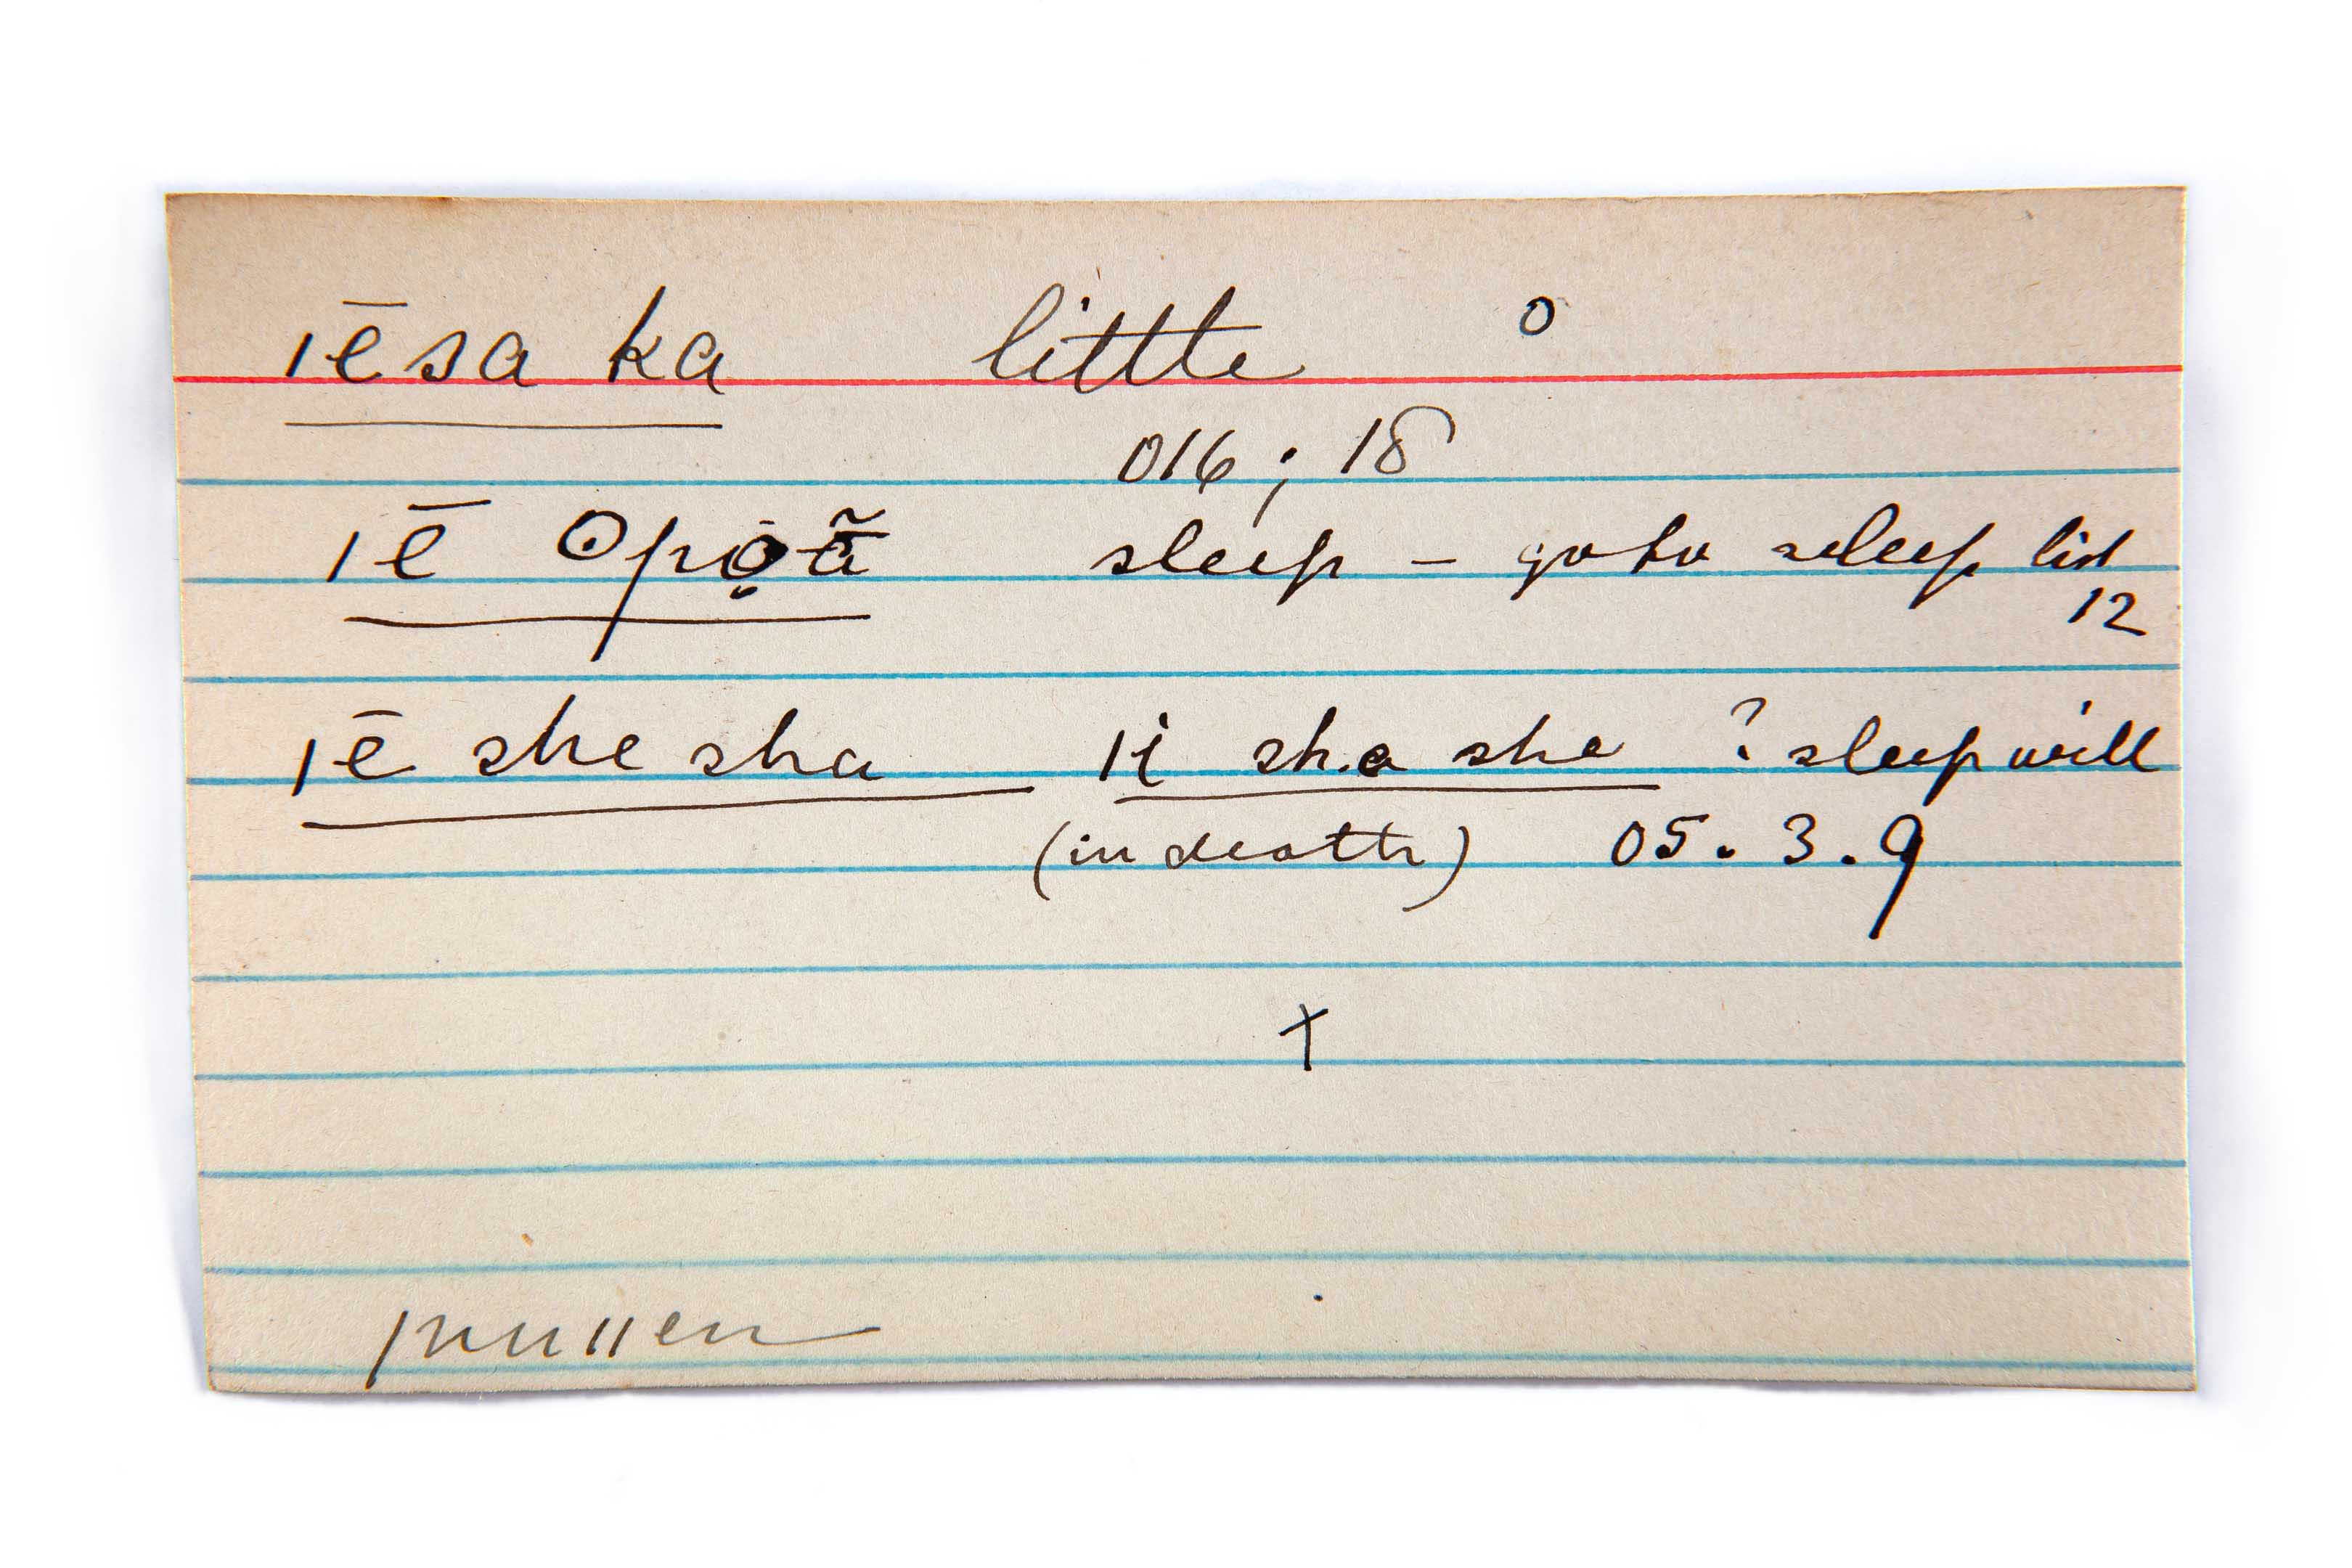 ıēsa ka little o
016 ; 18
ıē opọã sleep – go to sleep list
12
ıē she sha ıi sha she ? sleep will
(in death) 05. 3. 9
x